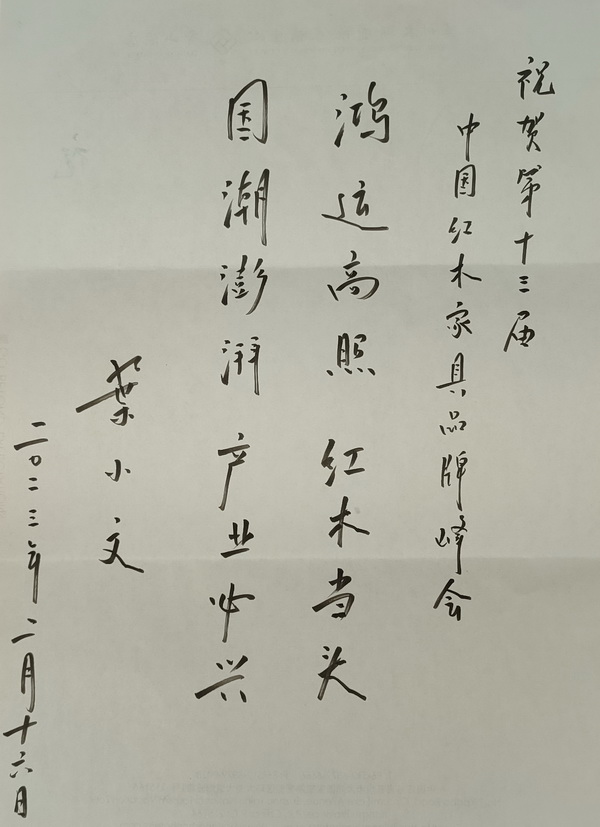 祝贺第十三届
中国红木家具品牌峰会
鸿运高照 红木当头
国潮澎湃 产业必兴
葉小文
二〇二三年二月十六日